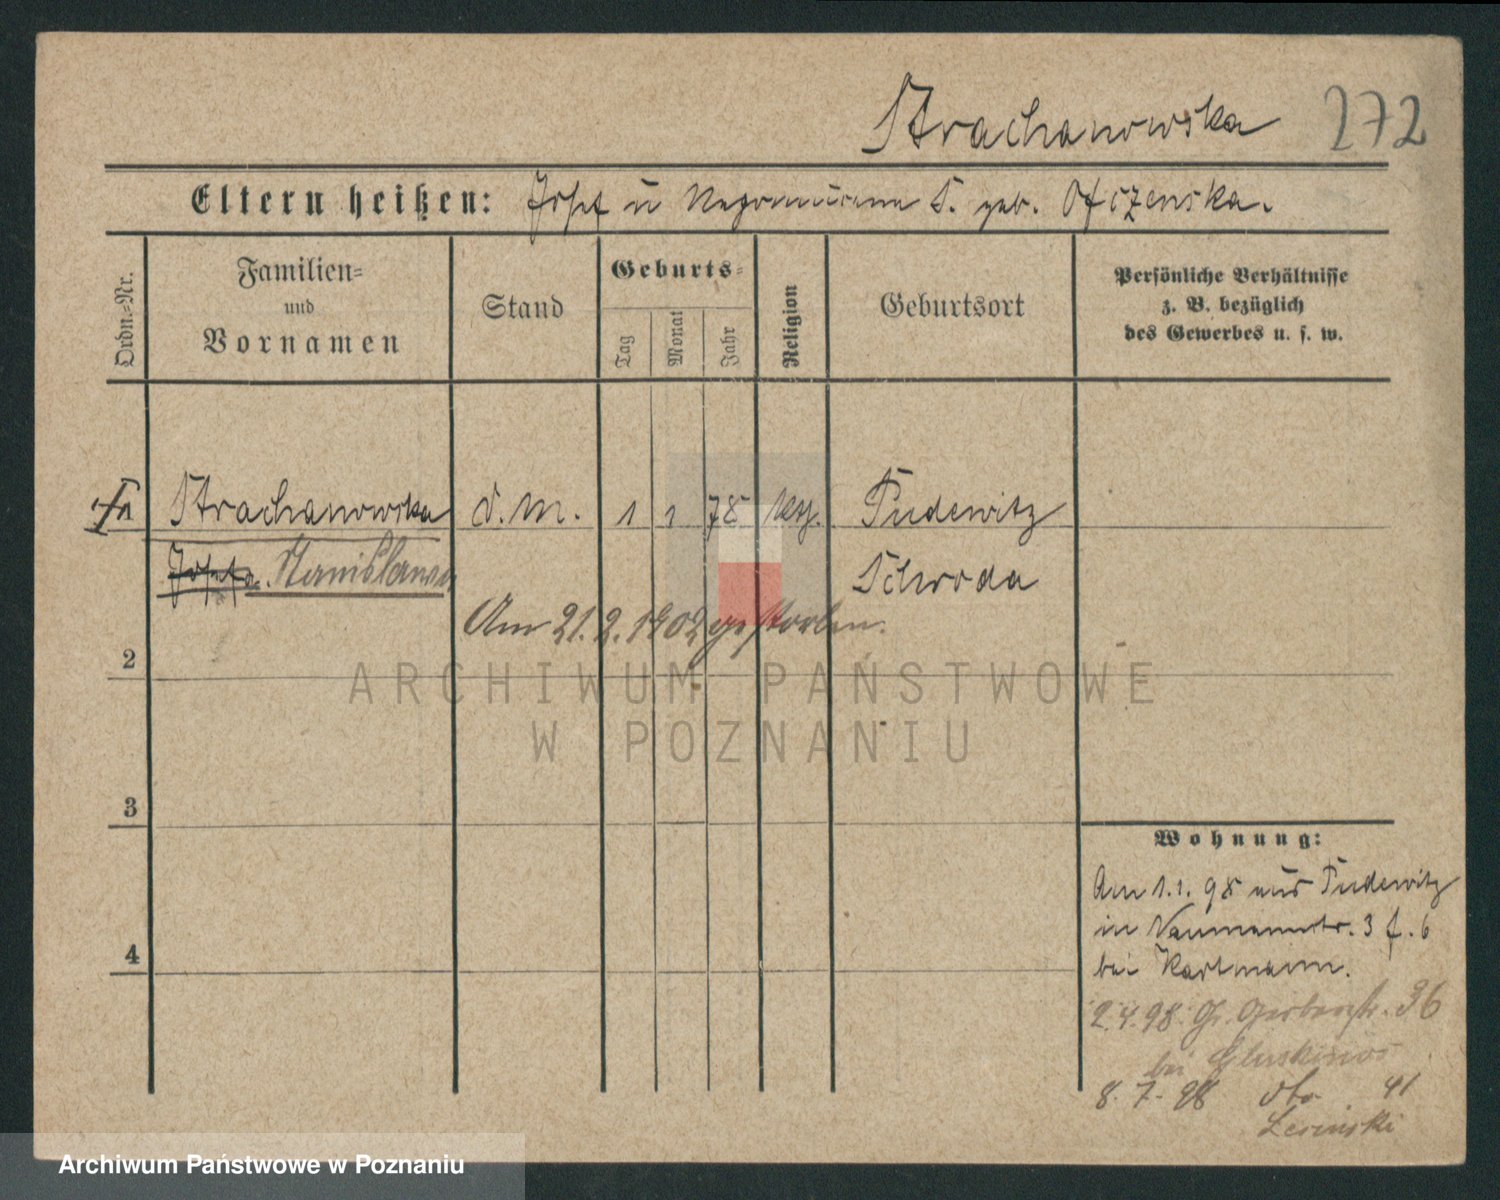 Strachanowska 272
Eltern heißen: Josef u Nepomucena S. geb. Ofczenska.
Ordn.-Nr.
Familien-
und
Vornamen
Stand
Geburts-
Tag
Monat
Jahr
Religion
Geburtsort
Persönliche Verhältnisse
z. B. bezüglich
des Gewerbes u. s. w.
1 Strachanowska d. m. 1 1 78 kth. Pudewitz
Josefa. Stanislawa Schroda
Am 21. 2. 1902 gestorben.
2
ARCHIWUM PAŃSTWOWE
W POZNANIU
3
Wohnung:
Am 1.1. 98 aus Pudewitz
in Naumannstr. 3 f. 6
bei Hartmann.
4
2.4.98. Gr. Gerberstr. 36
bei
8. 7. 98 dto 41
Archiwum Państwowe w Poznaniu